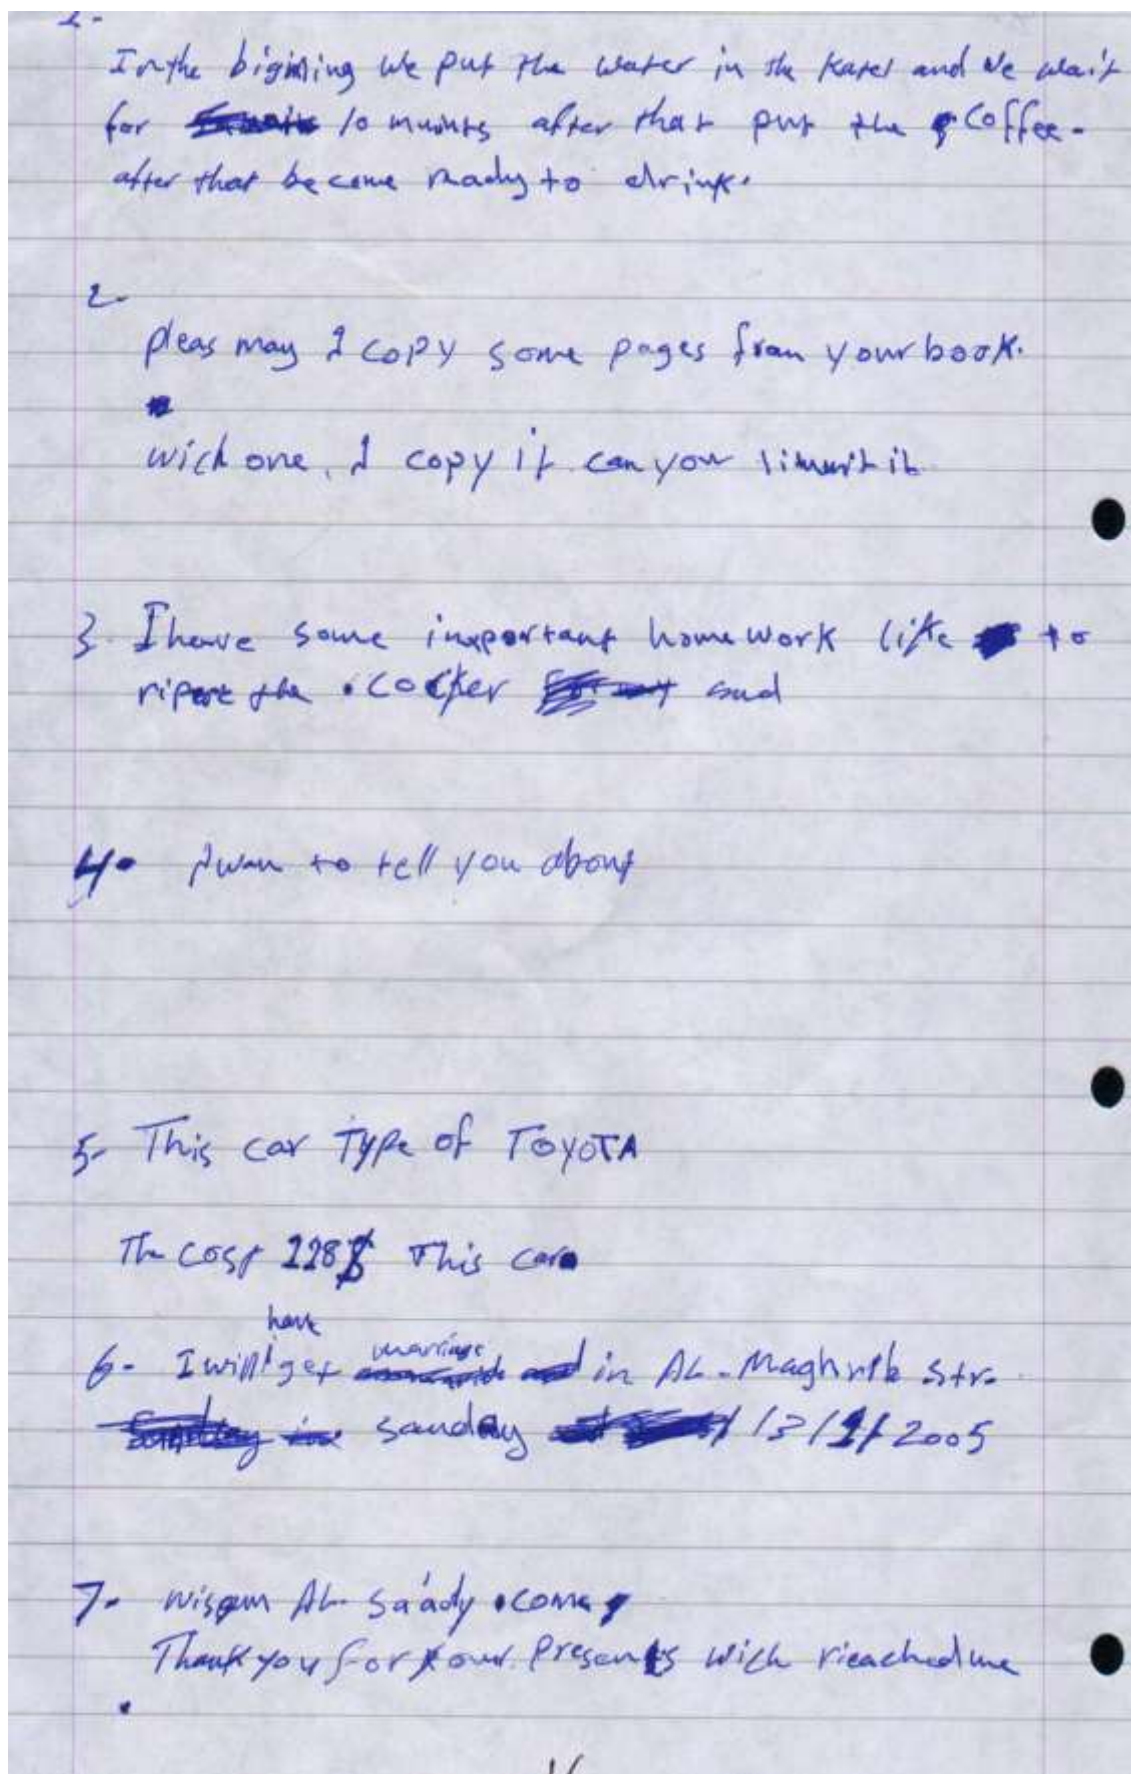 1-
In the bigining we put the water in the Katel and we wait
for 10 muints after that put the coffee.
after that become ready to drink.
2-
pleas may I copy some pages from your book.
wich one, I copy it can you it
3. I have some important homework like to
the and
4. I wan to tell you about
5- This car Type of TOYOTA
The cost 228$ This car
have
6- I will get marriage in AL-Maghrib str.
sanday 13/1/2005
7- wisam AL-sáady come
Thank you for your Presents wich rieached me